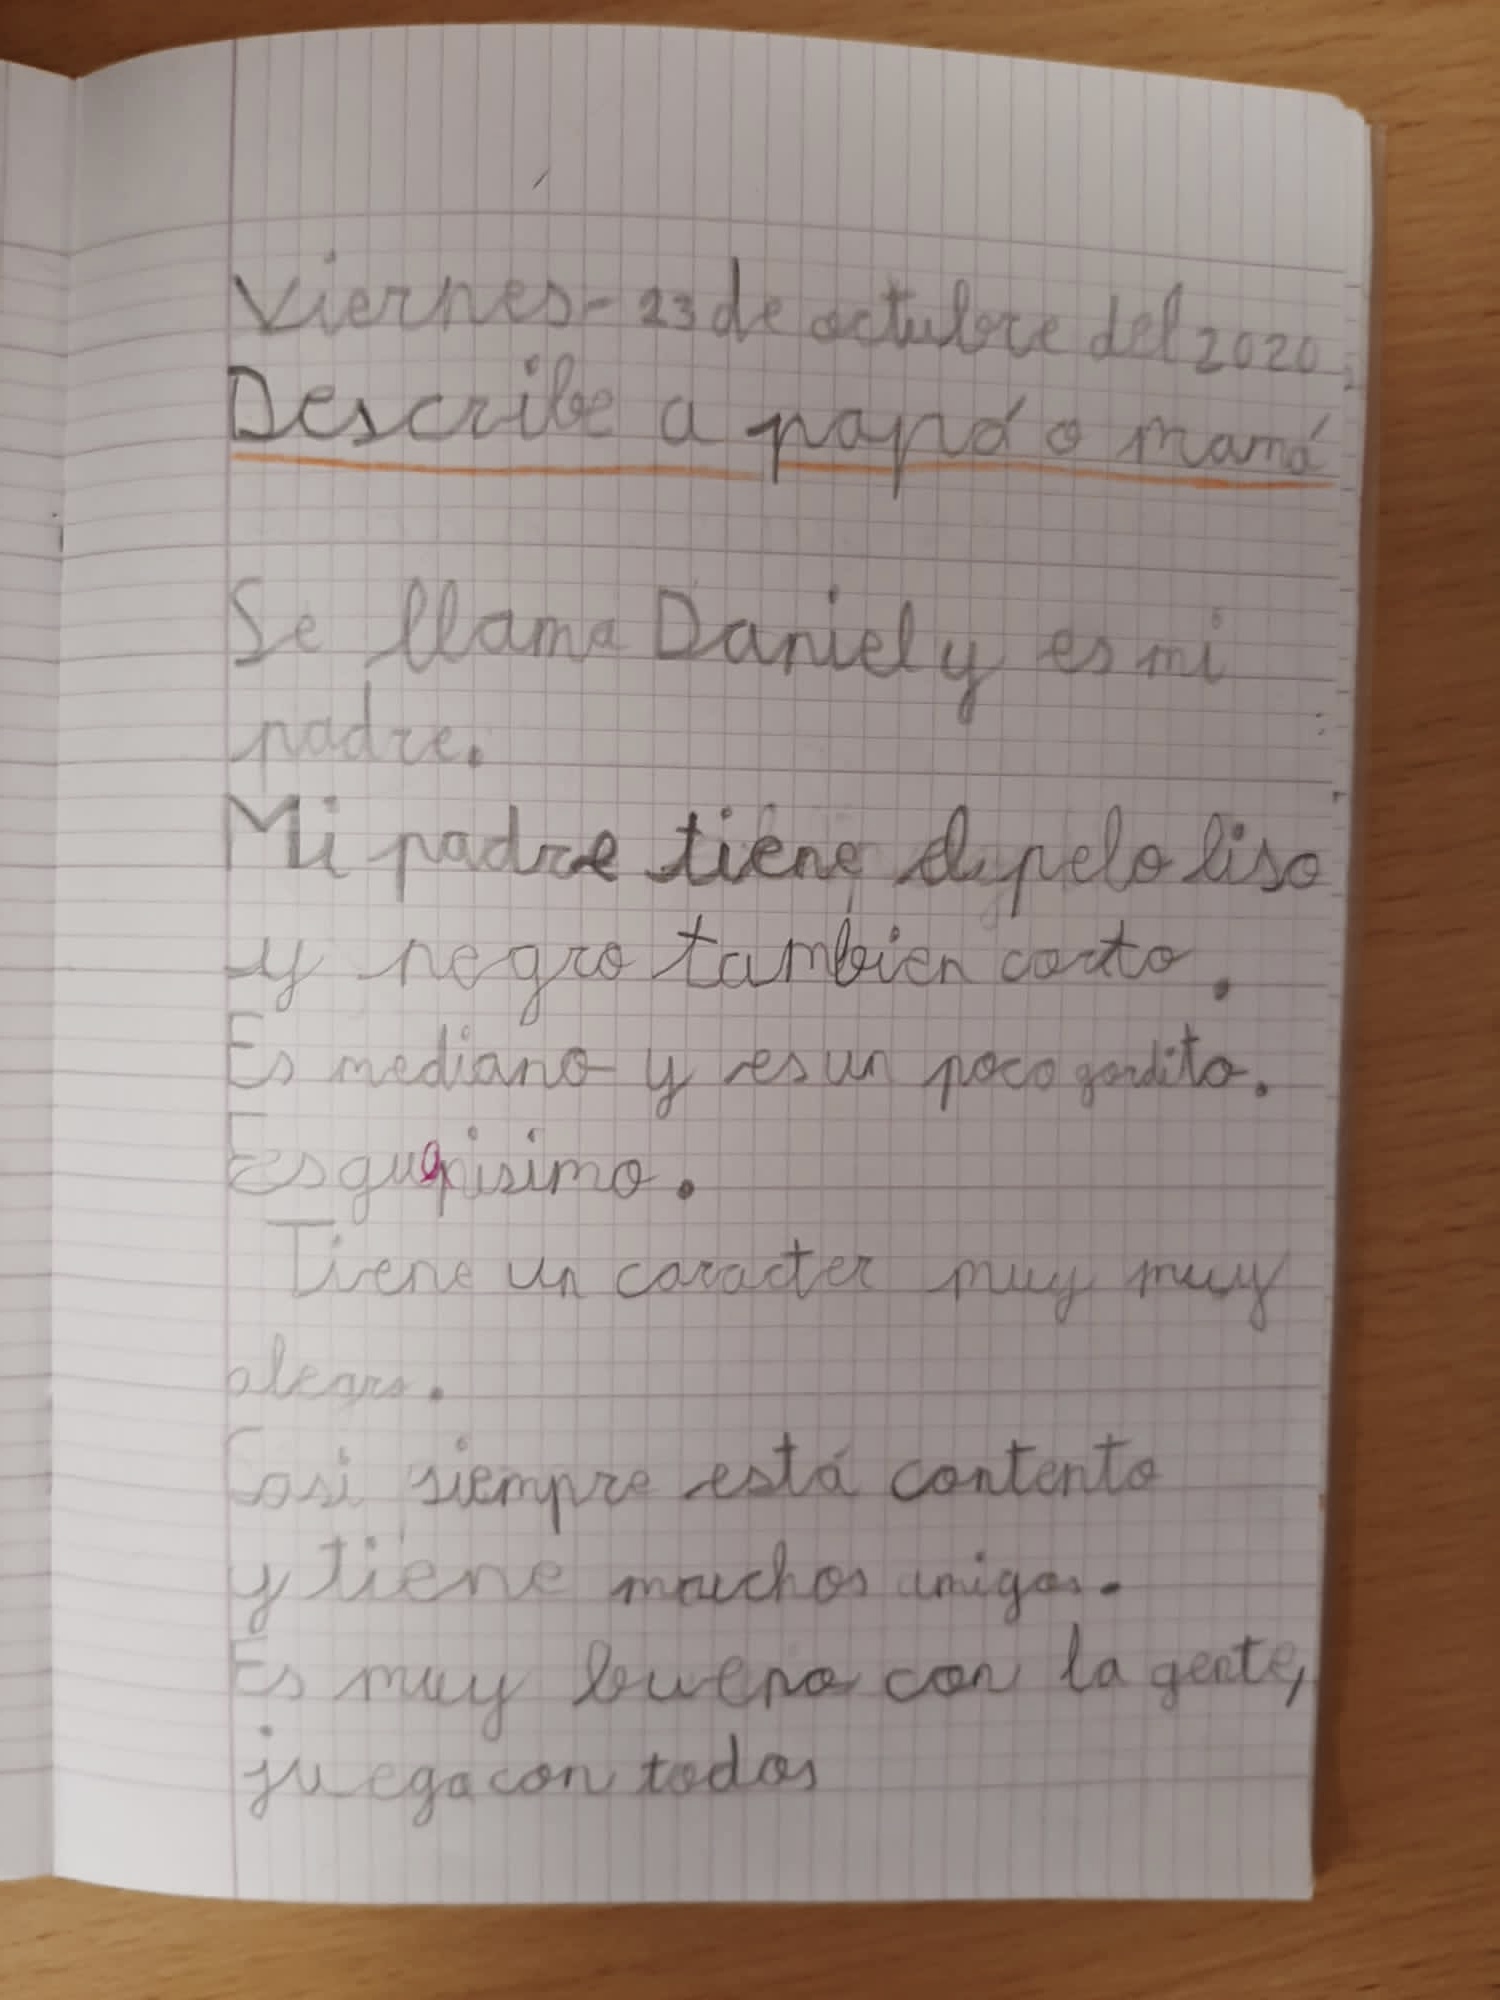 Viernes-23 de octubre del 2020.
Describe a papá o mamá
Se llama Daniel y es mi
padre.
Mi padre tiene el pelo liso
y negro tambien corto.
Es mediano y es un poco gordito.
Es guapisimo.
Tiene un caracter muy muy
alegre.
Casi siempre está contento
y tiene muchos amigos.
Es muy bueno con la gente,
juega con todos